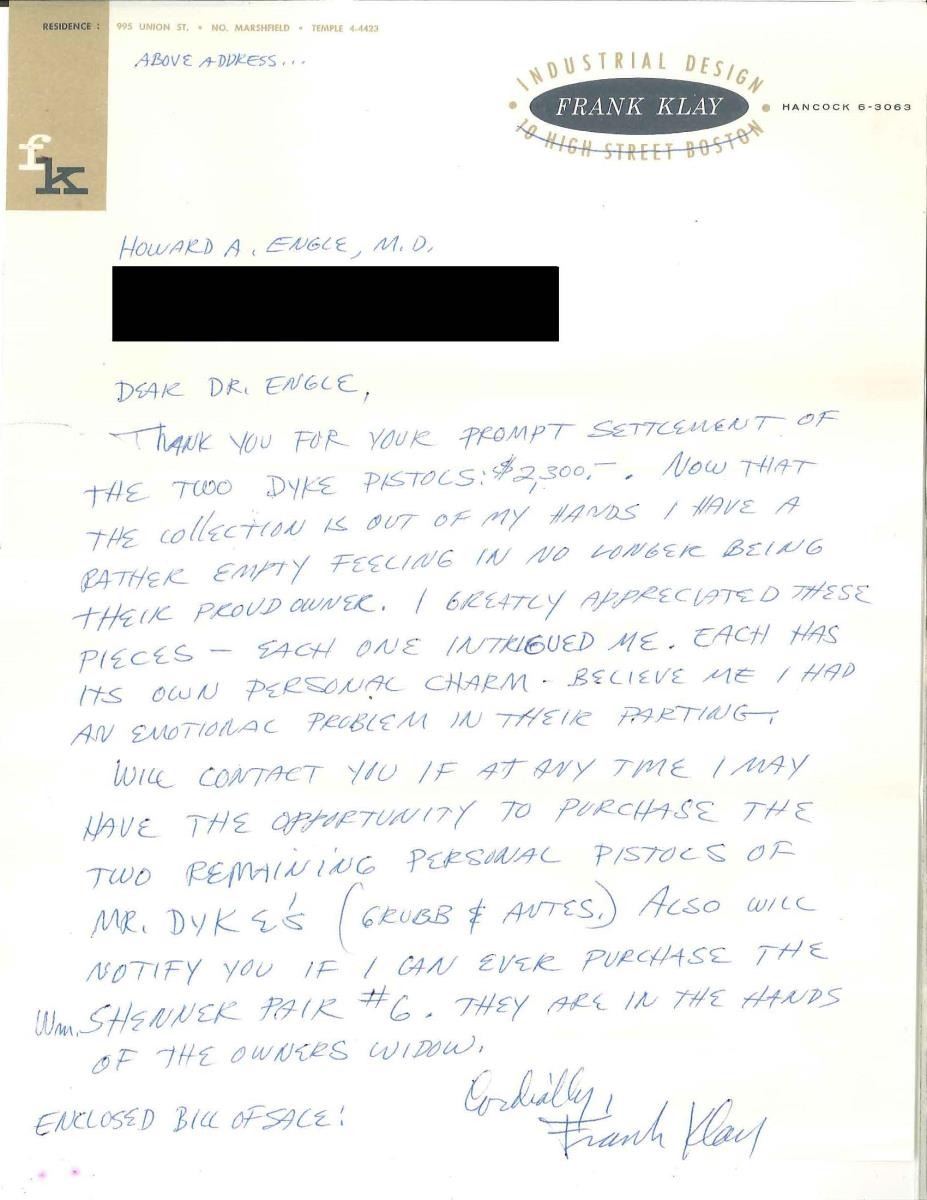 RESIDENCE : 995 UNION ST. • NO. MARSHFIELD • TEMPLE 4-4423
ABOVE ADDRESS...
INDUSTRIAL DESIGN
FRANK KLAY
10 HIGH STREET BOSTON
HANCOCK 6-3063
fk
HOWARD A. ENGLE, M.D.
DEAR DR. ENGLE,
THANK YOU FOR YOUR PROMPT SETTLEMENT OF
THE TWO DYKE PISTOLS: $2,300.– . NOW THAT
THE COLLECTION IS OUT OF MY HANDS I HAVE A
RATHER EMPTY FEELING IN NO LONGER BEING
THEIR PROUD OWNER. I GREATLY APPRECIATED THESE
PIECES — EACH ONE INTRIGUED ME. EACH HAS
ITS OWN PERSONAL CHARM - BELIEVE ME I HAD
AN EMOTIONAL PROBLEM IN THEIR PARTING.
WILL CONTACT YOU IF AT ANY TIME I MAY
HAVE THE OPPORTUNITY TO PURCHASE THE
TWO REMAINING PERSONAL PISTOLS OF
MR. DYKE'S (GRUBB & ANTES.) ALSO WILL
NOTIFY YOU IF I CAN EVER PURCHASE THE
Wm. SHENNER PAIR #6. THEY ARE IN THE HANDS
OF THE OWNERS WIDOW.
Cordially,
Frank Klay
ENCLOSED BILL OF SALE!